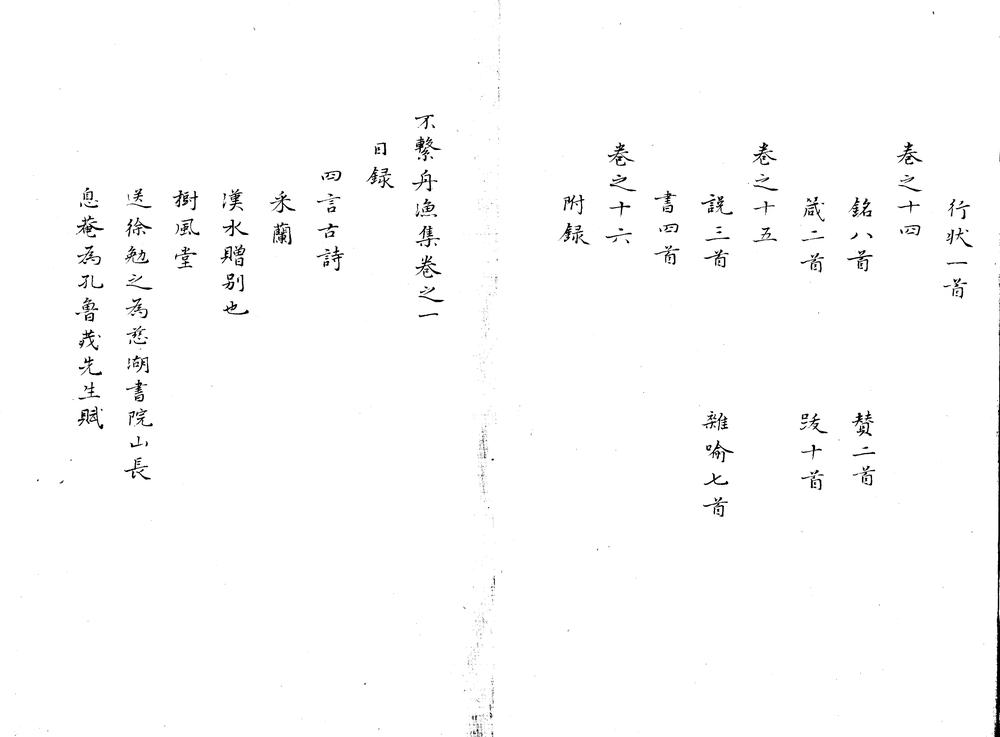 行状一首
卷之十四
銘八首 贊二首
箴二首 跋十首
卷之十五
説三首 雜喻七首
書四首
卷之十六
附録
不繫舟漁集卷之一
目録
四言古詩
采蘭
漢水贈别也
樹風堂
送徐勉之為慈湖書院山長
息菴為孔魯茂先生賦